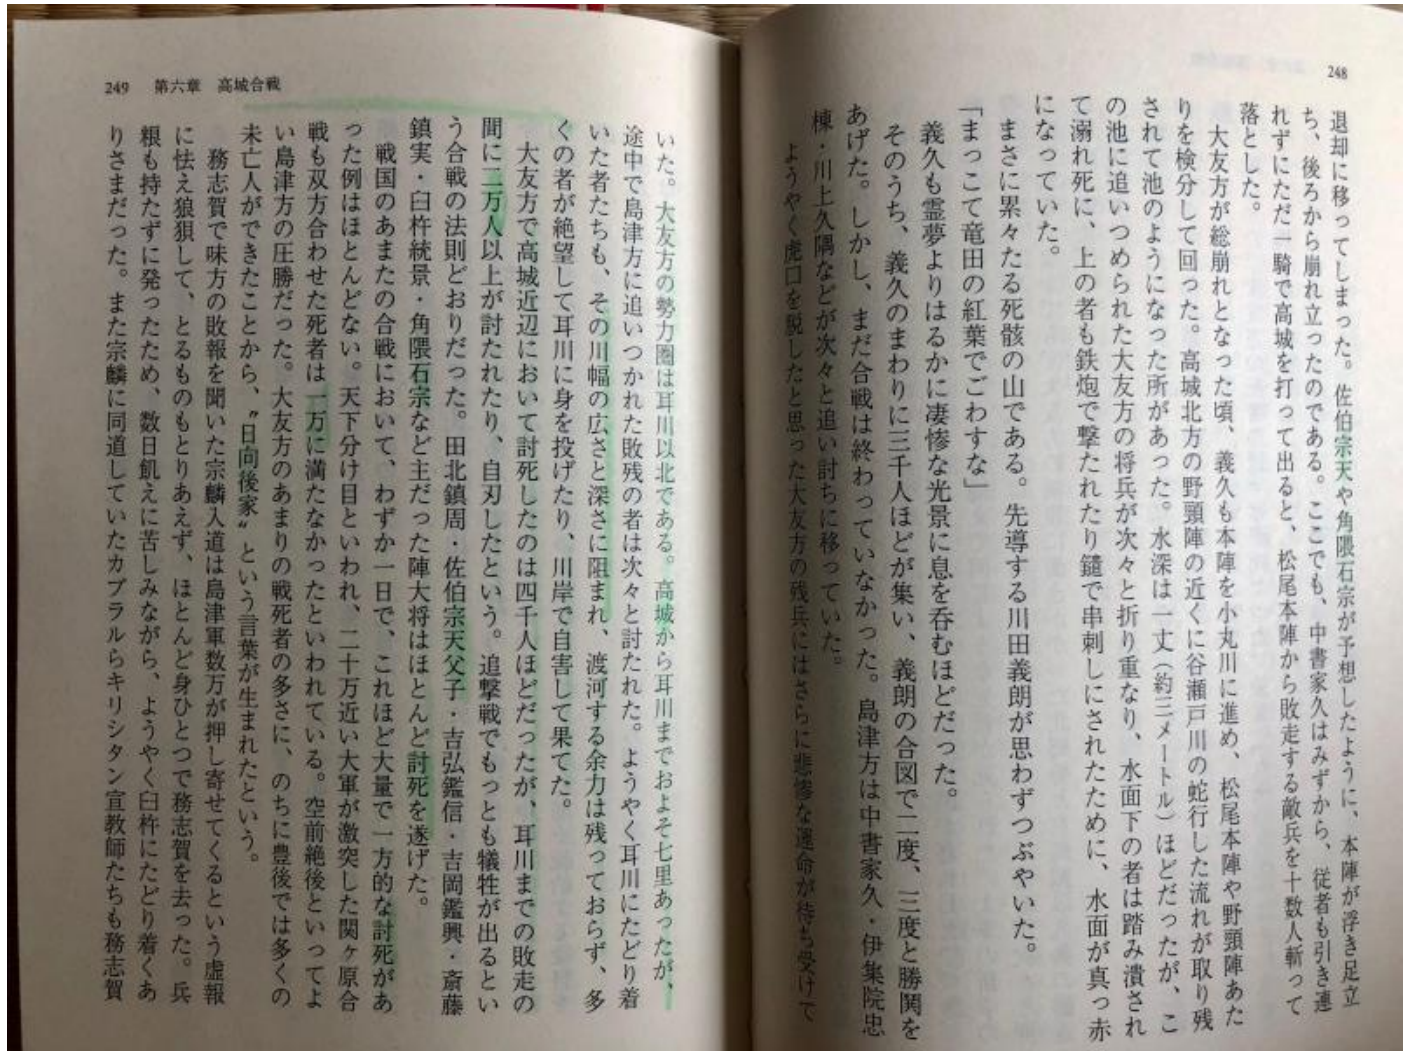 248
退却に移ってしまった。佐伯宗天や角隈石宗が予想したように、本陣が浮き足立
ち、後ろから崩れ立ったのである。ここでも、中書家久はみずから、従者も引き連
れずにただ一騎で高城を打って出ると、松尾本陣から敗走する敵兵を十数人斬って
落とした。
大友方が総崩れとなった頃、義久も本陣を小丸川に進め、松尾本陣や野頸陣あた
りを検分して回った。高城北方の野頸陣の近くに谷瀬戸川の蛇行した流れが取り残
されて池のようになった所があった。水深は一丈（約三メートル）ほどだったが、こ
の池に追いつめられた大友方の将兵が次々と折り重なり、水面下の者は踏み潰され
て溺れ死に、上の者も鉄炮で撃たれたり鑓で串刺しにされたために、水面が真っ赤
になっていた。
まさに累々たる死骸の山である。先導する川田義朗が思わずつぶやいた。
「まっこて竜田の紅葉でごわすな」
義久も霊夢よりはるかに凄惨な光景に息を呑むほどだった。
そのうち、義久のまわりに三千人ほどが集い、義朗の合図で二度、三度と勝鬨を
あげた。しかし、まだ合戦は終わっていなかった。島津方は中書家久・伊集院忠
棟・川上久隅などが次々と追い討ちに移っていた。
ようやく虎口を脱したと思った大友方の残兵にはさらに悲惨な運命が待ち受けて
249 第六章 高城合戦
いた。大友方の勢力圏は耳川以北である。高城から耳川までおよそ七里あったが、
途中で島津方に追いつかれた敗残の者は次々と討たれた。ようやく耳川にたどり着
いた者たちも、その川幅の広さと深さに阻まれ、渡河する余力は残っておらず、多
くの者が絶望して耳川に身を投げたり、川岸で自害して果てた。
大友方で高城近辺において討死したのは四千人ほどだったが、耳川までの敗走の
間に二万人以上が討たれたり、自刃したという。追撃戦でもっとも犠牲が出るとい
う合戦の法則どおりだった。田北鎮周・佐伯宗天父子・吉弘鑑信・吉岡鑑興・斎藤
鎮実・臼杵統景・角隈石宗など主だった陣大将はほとんど討死を遂げた。
戦国のあまたの合戦において、わずか一日で、これほど大量で一方的な討死があ
った例はほとんどない。天下分け目といわれ、二十万近い大軍が激突した関ヶ原合
戦も双方合わせた死者は一万に満たなかったといわれている。空前絶後といってよ
い島津方の圧勝だった。大友方のあまりの戦死者の多さに、のちに豊後では多くの
未亡人ができたことから、〝日向後家〟という言葉が生まれたという。
務志賀で味方の敗報を聞いた宗麟入道は島津軍数万が押し寄せてくるという虚報
に怯え狼狽して、とるものもとりあえず、ほとんど身ひとつで務志賀を去った。兵
粮も持たずに発ったため、数日飢えに苦しみながら、ようやく臼杵にたどり着くあ
りさまだった。また宗麟に同道していたカブラルらキリシタン宣教師たちも務志賀